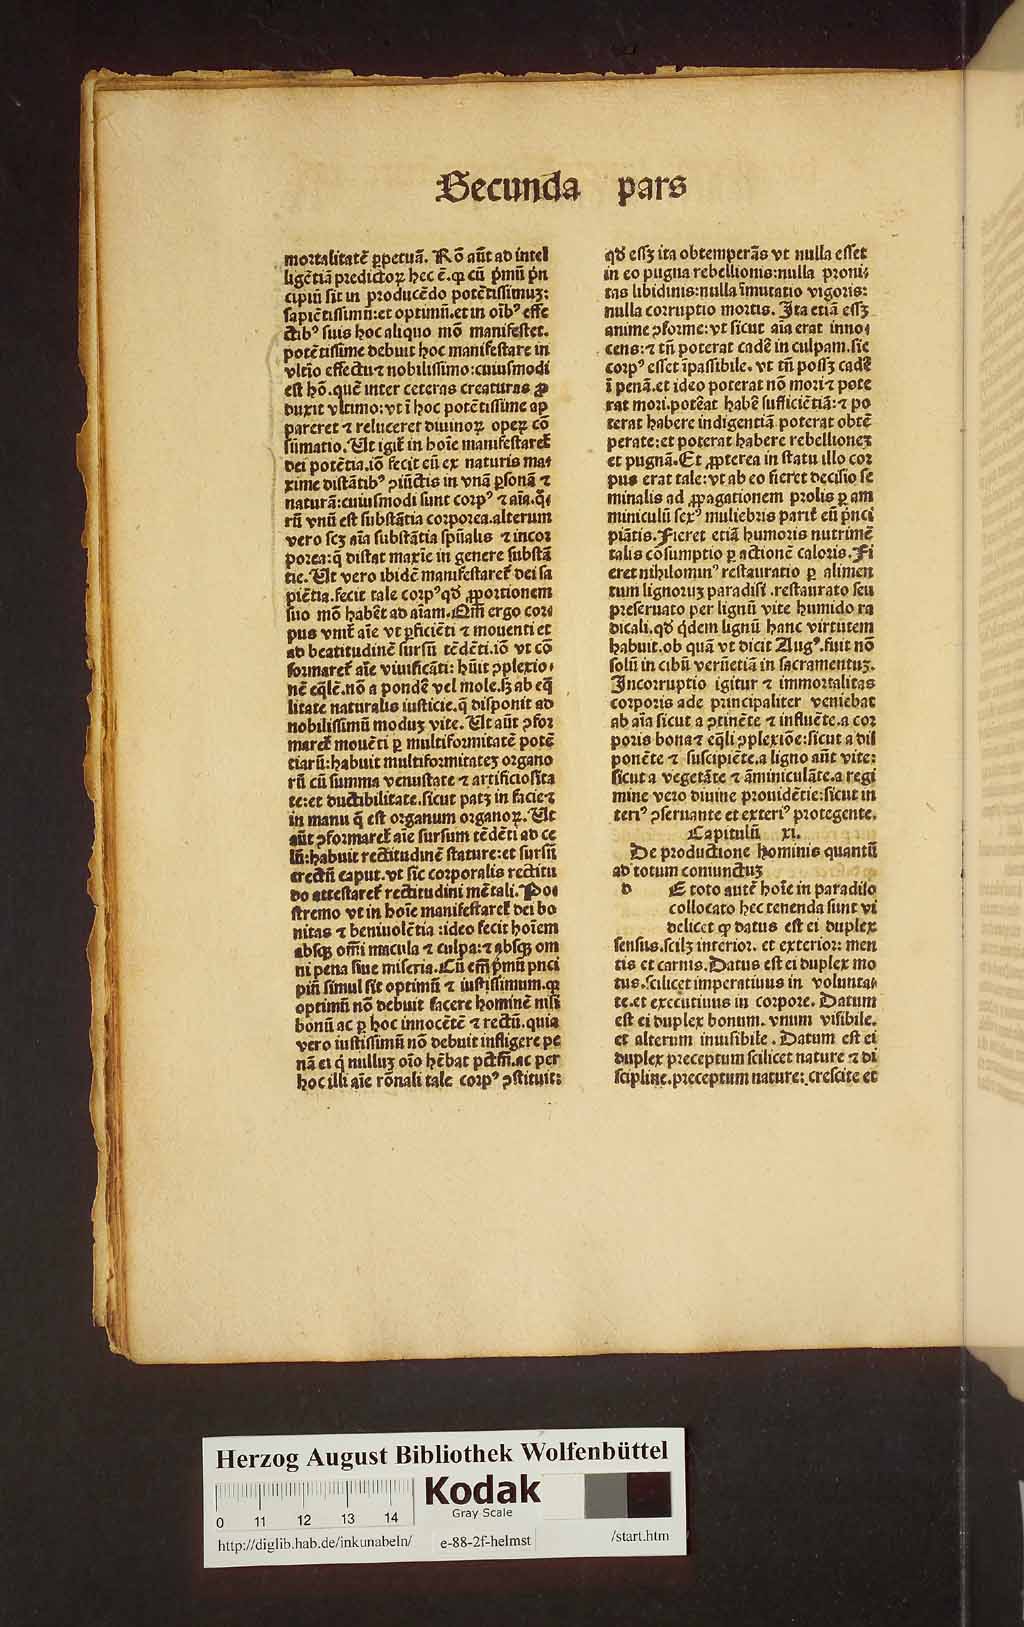 Secunda pars
mortalitatē ꝑpetuā. Rõ aūt ad intel
ligētiā predictoꝝ hec ē. ꝙ cū pͥmū pͥn
cipiū sit in producēdo potētissimuʒ:
sapiētissimū: et optimū. et in oībꝰ effe
ctibꝰ suis hoc aliquo mō manifestet.
potētissime debuit hoc manifestare in
vltīo effectu ⁊ nobilissimo: cuiusmodi
est hō. quē inter ceteras creaturas ꝓ
duxit vltimo: vt ī hoc potētissime ap
pareret ⁊ reluceret diuinoꝝ opeꝝ cō
sūmatio. Ut igit̄ in hoīe manifestaret̄
dei potētia. iō fecit eū ex naturis ma⸗
xime distātibꝰ ↄiūctis in vnā ꝑsonā ⁊
naturā: cuiusmodi sunt corpꝰ ⁊ aīa. q̄⸗
rū vnū est substātia corporea. alterum
vero scʒ aīa substātia spūalis ⁊ incor
porea: q̄ distat maxīe in genere substā
tie. Ut vero ibidē manifestaret̄ dei sa
piētia. fecit tale corpꝰ qd̓ ꝓportionem
suo mō habēt ad aīam. Qm̄ ergo cor⸗
pus vnit̄ aīe vt ꝑficiēti ⁊ mouenti et
ad beatitudinē sursū tēdēti. iō vt cō
formaret̄ aīe viuificāti: hūit ↄplexio⸗
nē eq̄lē. nō a pondē vel mole. sʒ ab eq̄
litate naturalis iusticie. q̄ disponit ad
nobilissimū moduʒ vite. Ut aūt ↄfor
maret̄ mouēti ꝑ multiformitatē potē
tiarū: habuit multiformitateʒ organo
rū cū summa venustate ⁊ artificiosita
te: et ductibilitate. sicut patʒ in facie ⁊
in manu q̄ est organum organoꝝ. Ut
aūt ↄformaret̄ aīe sursum tēdēti ad ce
lū: habuit rectitudinē stature: et sursū
erectū caput. vt sic corporalis rectitu
do attestaret̄ rectitudini mētali. Po⸗
stremo vt in hoīe manifestaret̄ dei bo
nitas ⁊ beniuolētia: ideo fecit hoīem
absqʒ om̄i macula ⁊ culpa: ⁊ absqʒ om
ni pena siue miseria. Cū em̄ pͥmū pnci
piū simul sit optimū ⁊ iustissimum. qꝫ
optimū nō debuit facere hominē nisi
bonū ac ꝑ hoc innocētē ⁊ rectū. quia
vero iustissimū nō debuit infligere pe
nā ei qͥ nulluʒ oīo hēbat pctm̄. ac per
hoc illi aīe rōnali tale corpꝰ ↄstituit:
qd̓ essʒ ita obtemperās vt nulla esset
in eo pugna rebellionis: nulla proni⸗
tas libidinis: nulla īmutatio vigoris:
nulla corruptio mortis. Ita etiā essʒ
anime ↄforme: vt sicut aīa erat inno⸗
cens: ⁊ tn̄ poterat cadē in culpam. sic
corpꝰ esset īpassibile. vt tn̄ possʒ cadē
ī penā. et ideo poterat nō mori ⁊ pote
rat mori. potēat habē sufficiētiā: ⁊ po
terat habere indigentiā poterat obtē
perate: et poterat habere rebellioneʒ
et pugnā. Et ꝓpterea in statu illo cor
pus erat tale: vt ab eo fieret decisio se
minalis ad ꝓpagationem prolis ꝑ am
miniculū sexꝰ muliebris parit̄ eū pͥnci
piātis. Fieret etiā humoris nutrimē
talis cōsumptio ꝑ actionē caloris. Fi
eret nihilominꝰ restauratio ꝑ alimen
tum lignoruʒ paradisi. restaurato seu
preseruato per lignū vite humido ra
dicali. qd̓ qͥdem lignū hanc virtutem
habuit. ob quā vt dicit Augꝰ. fuit nō
solū in cibū verūetiā in sacramentuʒ.
Incorruptio igitur ⁊ immortalitas
corporis ade principaliter veniebat
ab aīa sicut a ↄtinēte ⁊ influēte. a cor
poris bona ⁊ eq̄li ↄplexiōe: sicut a dis
ponēte ⁊ suscipiēte. a ligno aūt vite:
sicut a vegetāte ⁊ āminiculāte. a regi
mine vero diuine prouidētie: sicut in
teriꝰ ↄseruante et exteriꝰ protegente.
Capitulū xi.
De productione hominis quantū
ad totum coniunctuʒ
d E toto autē hoīe in paradiso
collocato hec tenenda sunt vi
delicet ꝙ datus est ei duplex
sensus. scilʒ interior. et exterior: men
tis et carnis. Datus est ei duplex mo
tus. scilicet imperatiuus in volunta⸗
te. et executiuus in corpore. Datum
est ei duplex bonum. vnum visibile.
et alterum inuisibile. Datum est ei
duplex preceptum scilicet nature ⁊ di
scipline. preceptum nature: crescite et
Herzog August Bibliothek Wolfenbüttel
Kodak
Gray Scale
0 11 12 13 14
http://diglib.hab.de/inkunabeln/ e-88-2f-helmst /start.htm